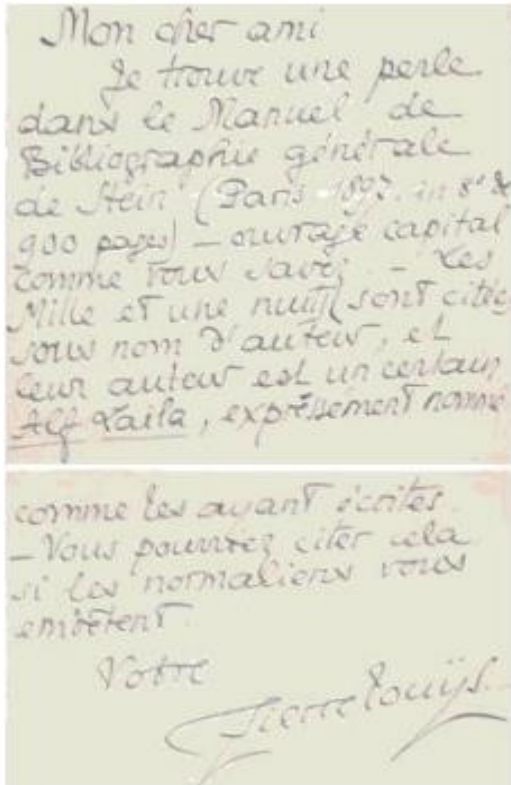 Mon cher ami
Je trouve une perle
dans le Manuel de
Bibliographie générale
de Stein (Paris 1897. in 8° de
900 pages) – ouvrage capital
comme vous savez. – Les
Mille et une nuits sont citées
sous nom d'auteur, et
leur auteur est un certain
Alf Laila, expressément nommé
comme les ayant écrites.
– Vous pourrez citer cela
si les normaliens vous
embêtent.
Votre
Pierre Louÿs.